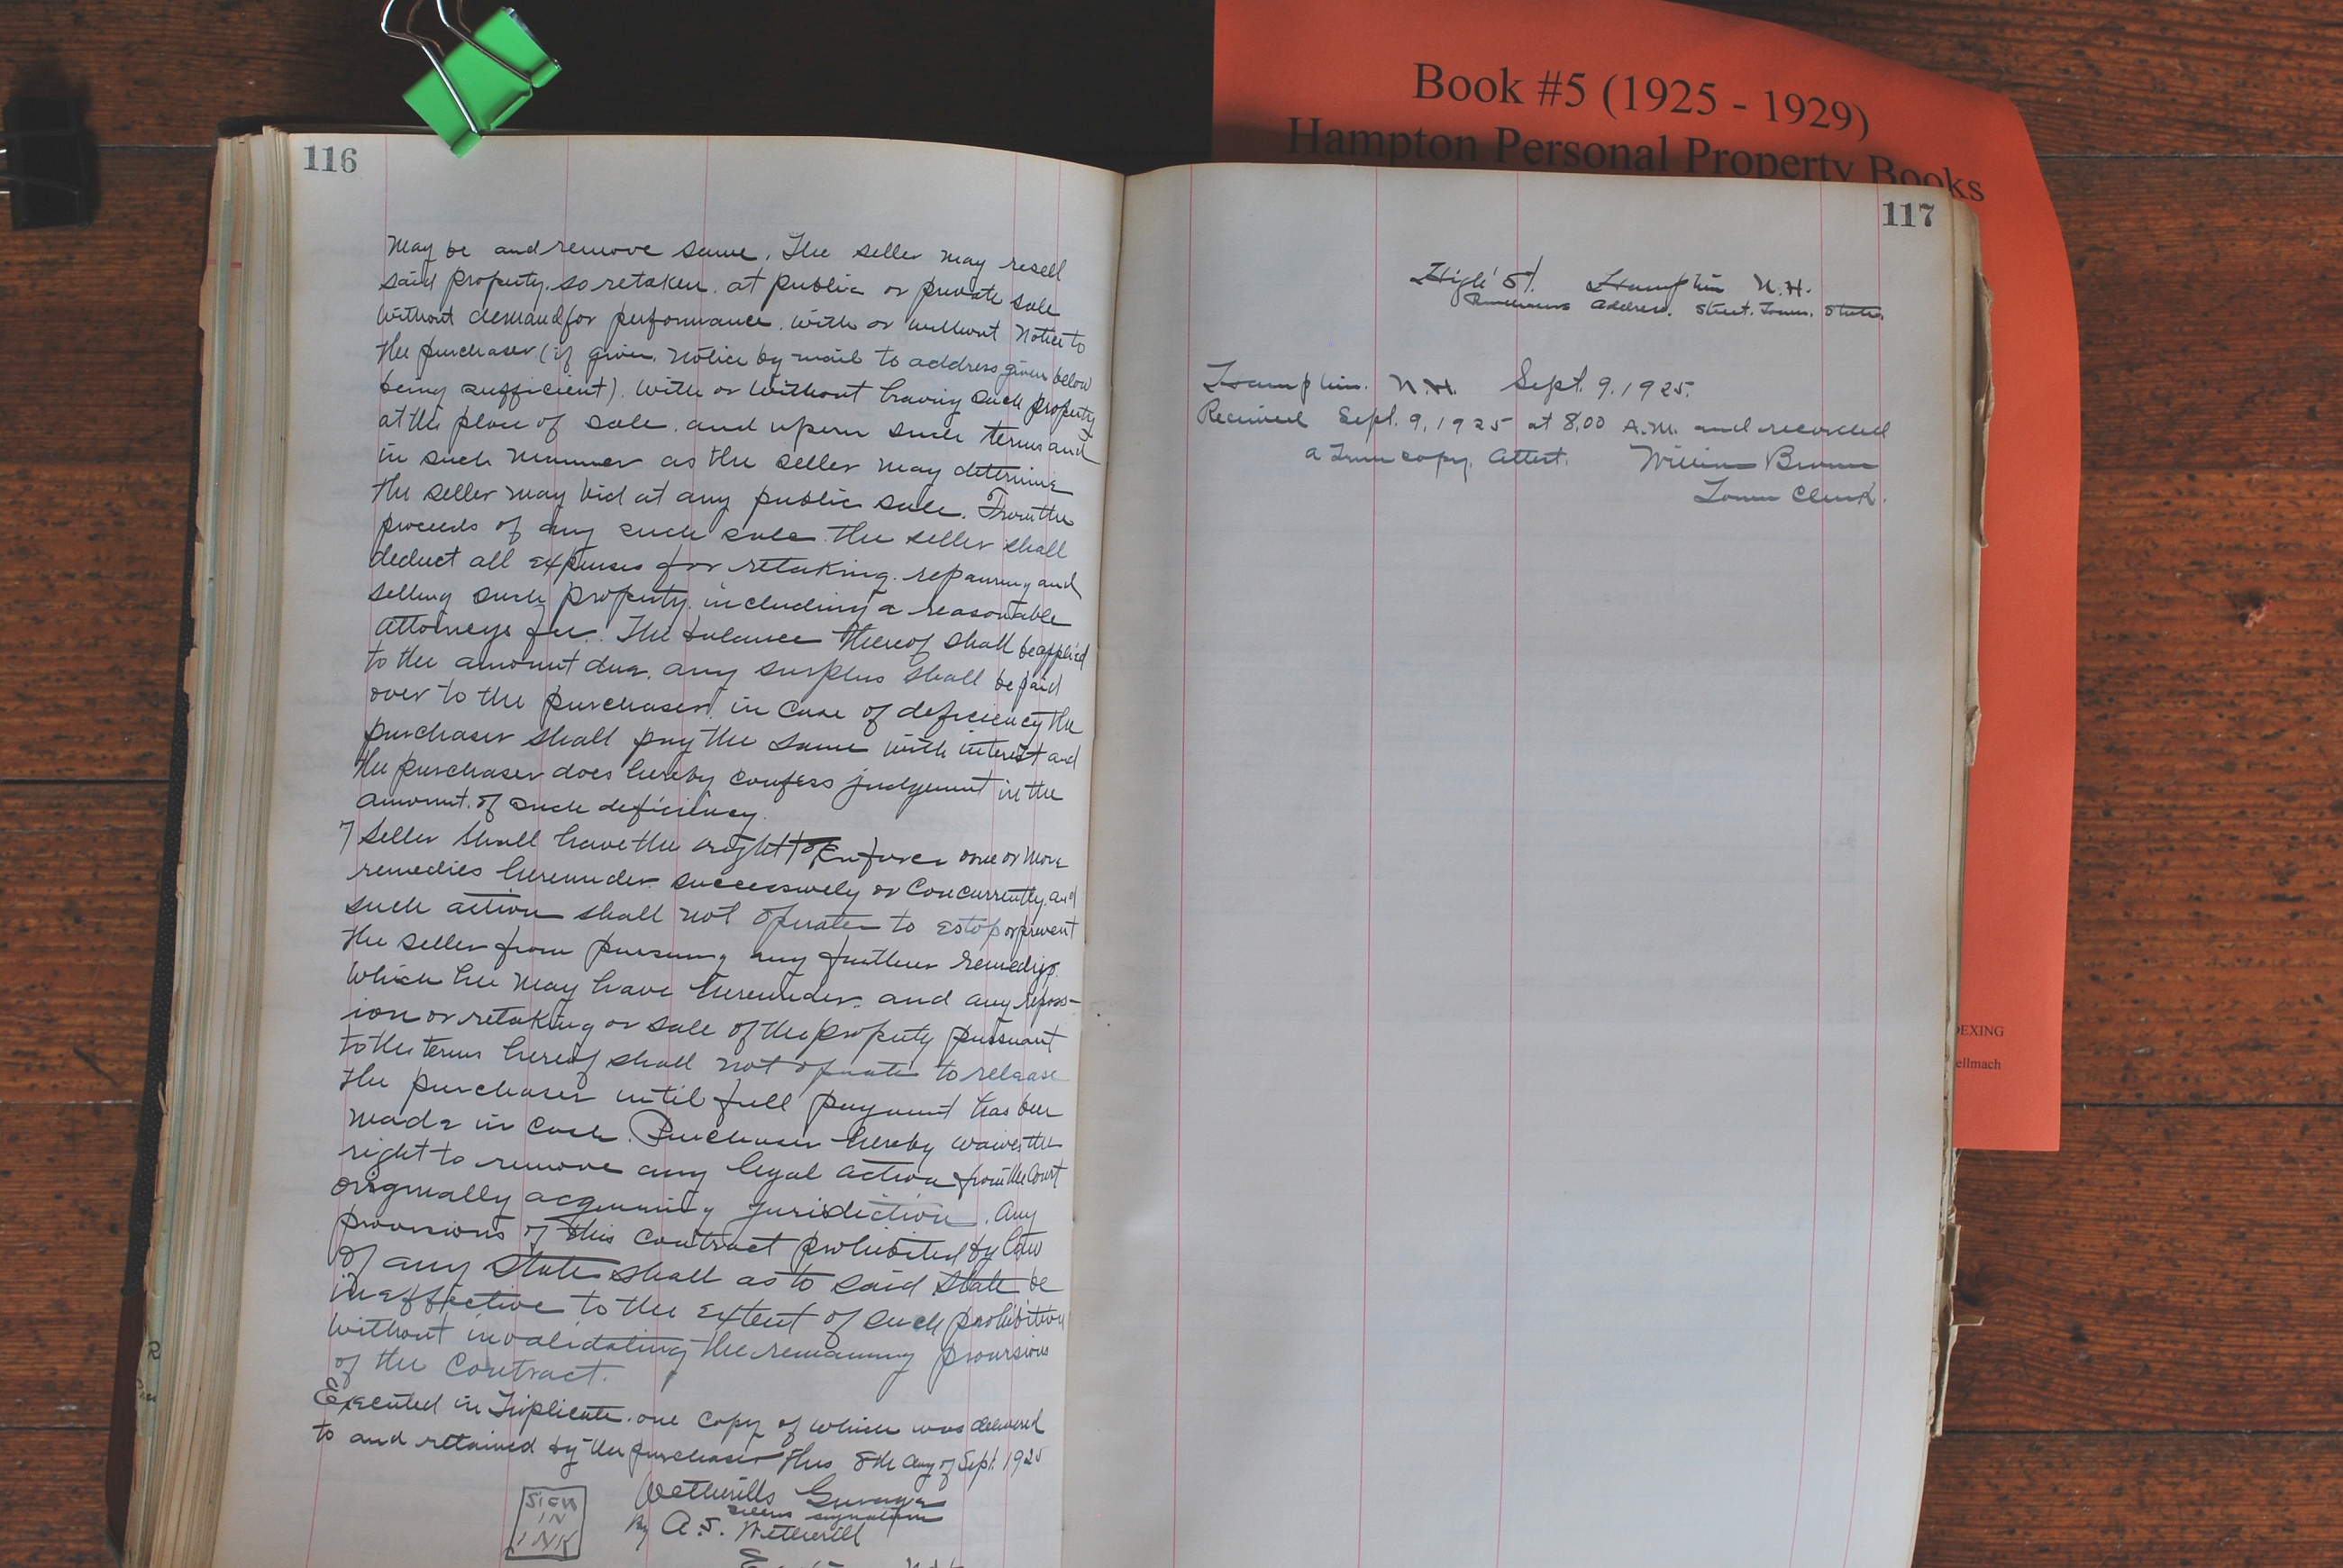 Book #5 (1925 - 1929)
Hampton Personal Property Books
116
may be and remove same. The seller may resell
said property, so retaken, at public or private sale
without demand for performance, with or without Notice to
the purchaser (if given, notice by mail to address given below
being sufficient). with or without having such property
at the place of sale, and upon such terms and
in such manner as the seller may determine
the seller may bid at any public sale. From the
proceeds of any such sale the seller shall
deduct all expenses for retaking, repairing and
selling such property, including a reasonable
attorneys fee. The balance thereof shall be applied
to the amount due, any surplus shall be paid
over to the purchaser, in case of deficiency the
purchaser shall pay the same with interest and
the purchaser does hereby confess judgement in the
amount of such deficiency.
7) Seller shall have the right to enforce one or more
remedies hereunder successively or concurrently, and
such action shall not operate to estop or prevent
the seller from pursuing any further remedy
which he may have hereunder, and any
ion or retaking or sale of the property pursuant
to the terms hereof shall not operate to release
the purchaser until full payment has been
made in cash. Purchaser hereby waives the
right to remove any legal action from the Court
originally acquiring jurisdiction. Any
provisions of this contract prohibited by law
of any State shall as to said State be
ineffective to the extent of such prohibition
without invalidating the remaining provisions
of the Contract.
Executed in Triplicate, one copy of which was delivered
to and retained by the purchaser this 8th day of Sept. 1925
Wetherills Garage
Sellers signature
By A.S. Wetherill
SIGN
IN
INK
117
High St. Hampton N.H.
Purchasers Address. Street. Town. State.
Hampton. N.H. Sept. 9. 1925.
Received Sept. 9, 1925 at 8.00 A.M. and recorded
a True copy. Attest. William Brown
Town Clerk.
EXING
ellmach